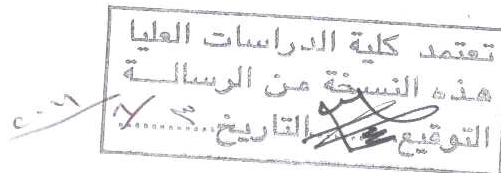 تعتمد كلية الدراسات العليا
هذه النسخة من الرسالـــة
التوقيع............التاريخ............